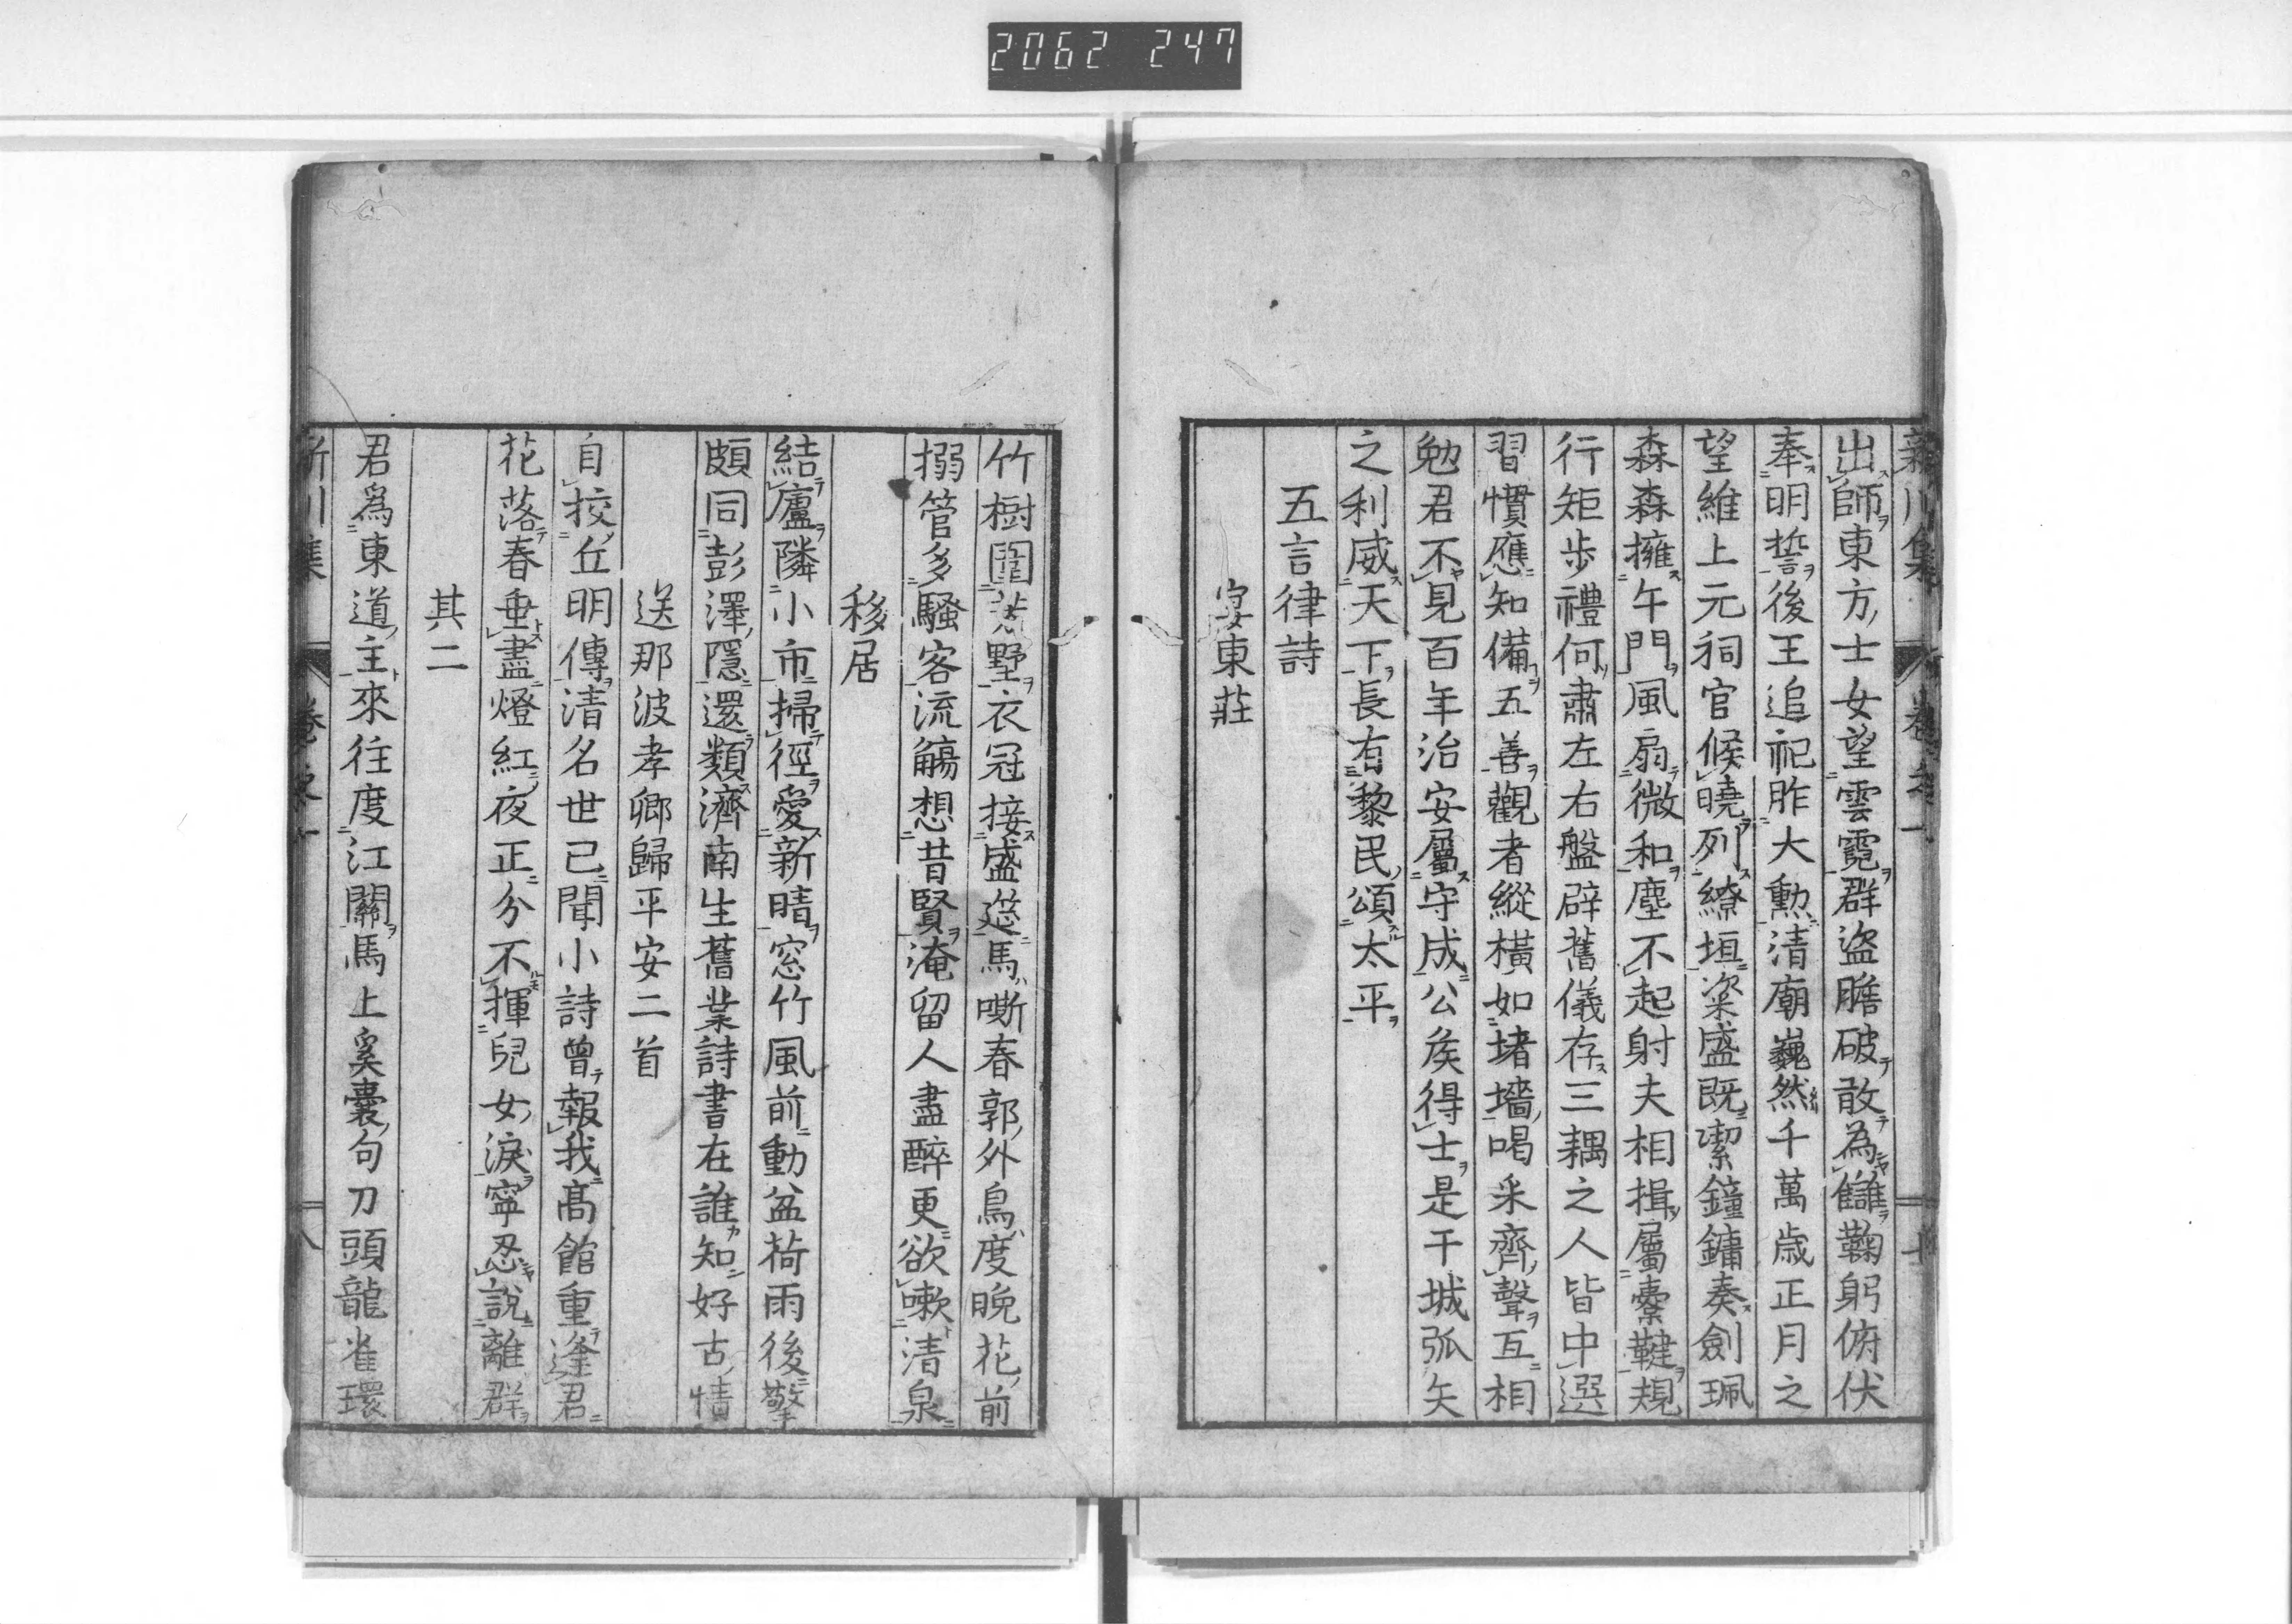 2062 247
出師東方士女望雲霓群盜膽破敢為讎鞠躬俯伏
奉明誓後王追祀胙大勲清廟巍然千萬歳正月之
望維上元祠官候曉列繚垣粢盛既潔鐘鏞奏劍珮
森森擁午門風扇微和塵不起射夫相揖屬櫜鞬規
行矩歩禮何肅左右盤辟舊儀存三耦之人皆中選
習慣應知備五善觀者縱橫如堵墻喝采齊聲互相
勉君不見百年治安屬守成公矦得士是干城弧矢
之利威天下長有黎民頌太平
五言律詩
宴東莊
竹樹圍荒墅衣冠接盛筵馬嘶春郭外鳥度晩花前
搦管多騷客流觴想昔賢淹留人盡醉更欲嗽清泉
移居
結廬隣小市掃徑愛新晴窓竹風前動盆荷雨後擎
頗同彭澤隱還類濟南生舊業詩書在誰知好古情
送那波孝卿歸平安二首
自挍丘明傳清名世已聞小詩曾報我高館重逢君
花落春垂盡燈紅夜正分不揮兒女淚寧忍說離群
其二
君爲東道主來往度江關馬上奚囊句刀頭龍雀環